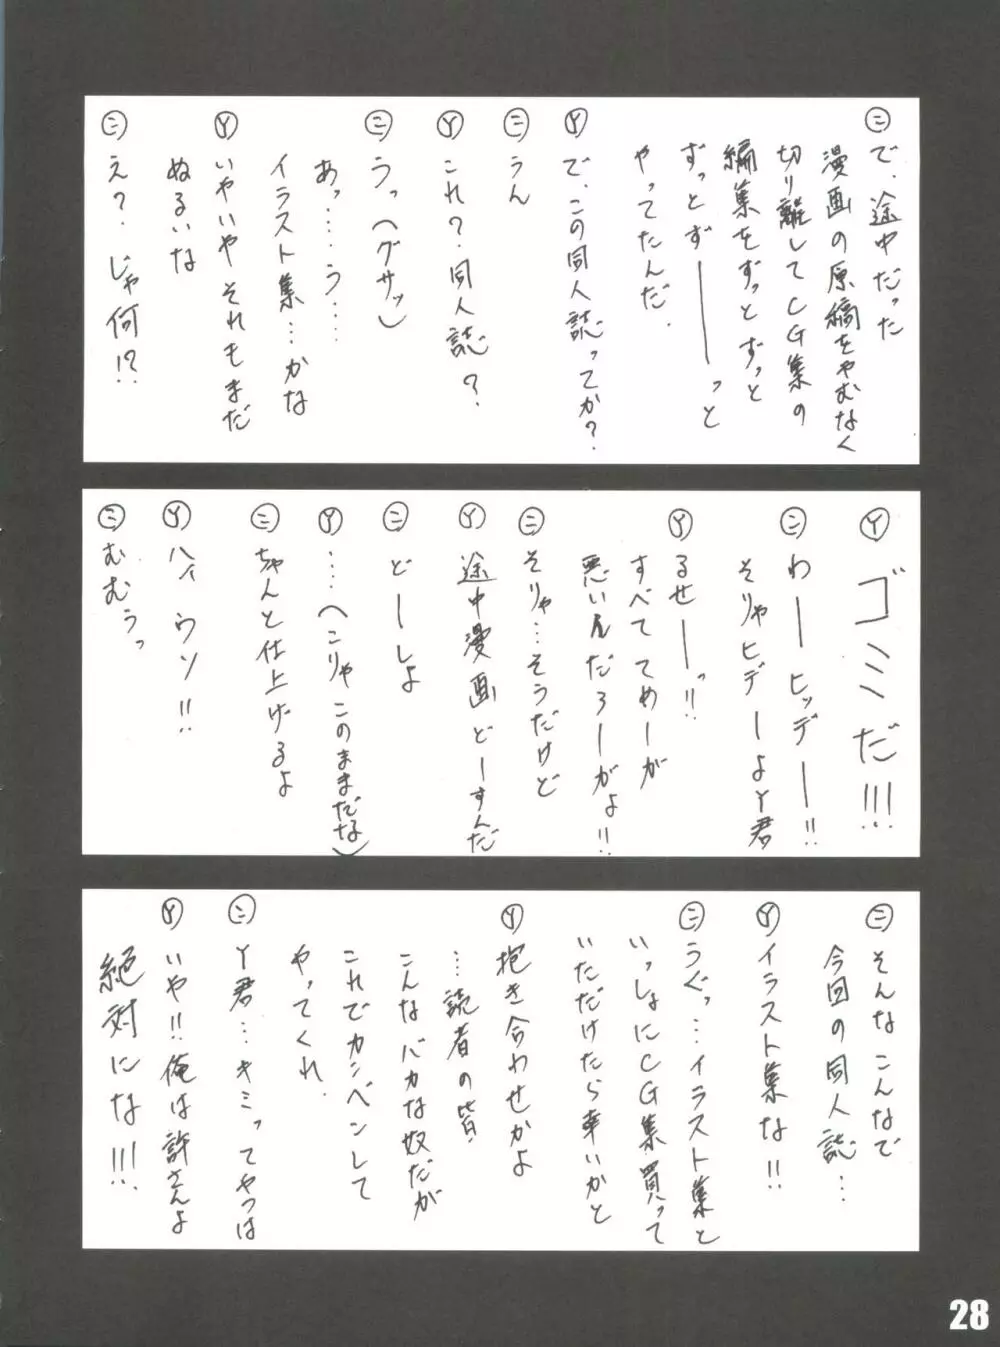 ㊁で、途中だった
漫画の原稿をやむなく
切り離してCG集の
編集をずっとずっと
ずっとずーーーっと
やってたんだ.
Ⓨで、この同人誌ってか?
㊁うん
Ⓨこれ?同人誌?
㊁うっ(グサッ)
あっ……う……
イラスト集…かな
Ⓨいやいやそれもまだ
ぬるいな
㊁え?じゃ何!?
Ⓨゴミだ!!!
㊁わーーヒッデー!!
そりゃヒデーよY君
Ⓨるせーーっ!!
すべててめーが
悪いんだろーがよ!!
㊁そりゃ…そうだけど
Ⓨ途中漫画どーすんだ
㊁どーしよ
Ⓨ……(こりゃこのままだな)
㊁ちゃんと仕上げるよ
Ⓨハイウソ!!
㊁むむうっ
㊁そんなこんなで
今回の同人誌…
Ⓨイラスト集な!!
㊁うぐっ…イラスト集と
いっしょにCG集買って
いただけたら幸いかと
Ⓨ抱き合わせかよ
……読者の皆.
こんなバカな奴だが
これでカンベンして
やってくれ.
㊁Y君…キミってやつは
Ⓨいや!!俺は許さんよ
絶対にな!!!
28